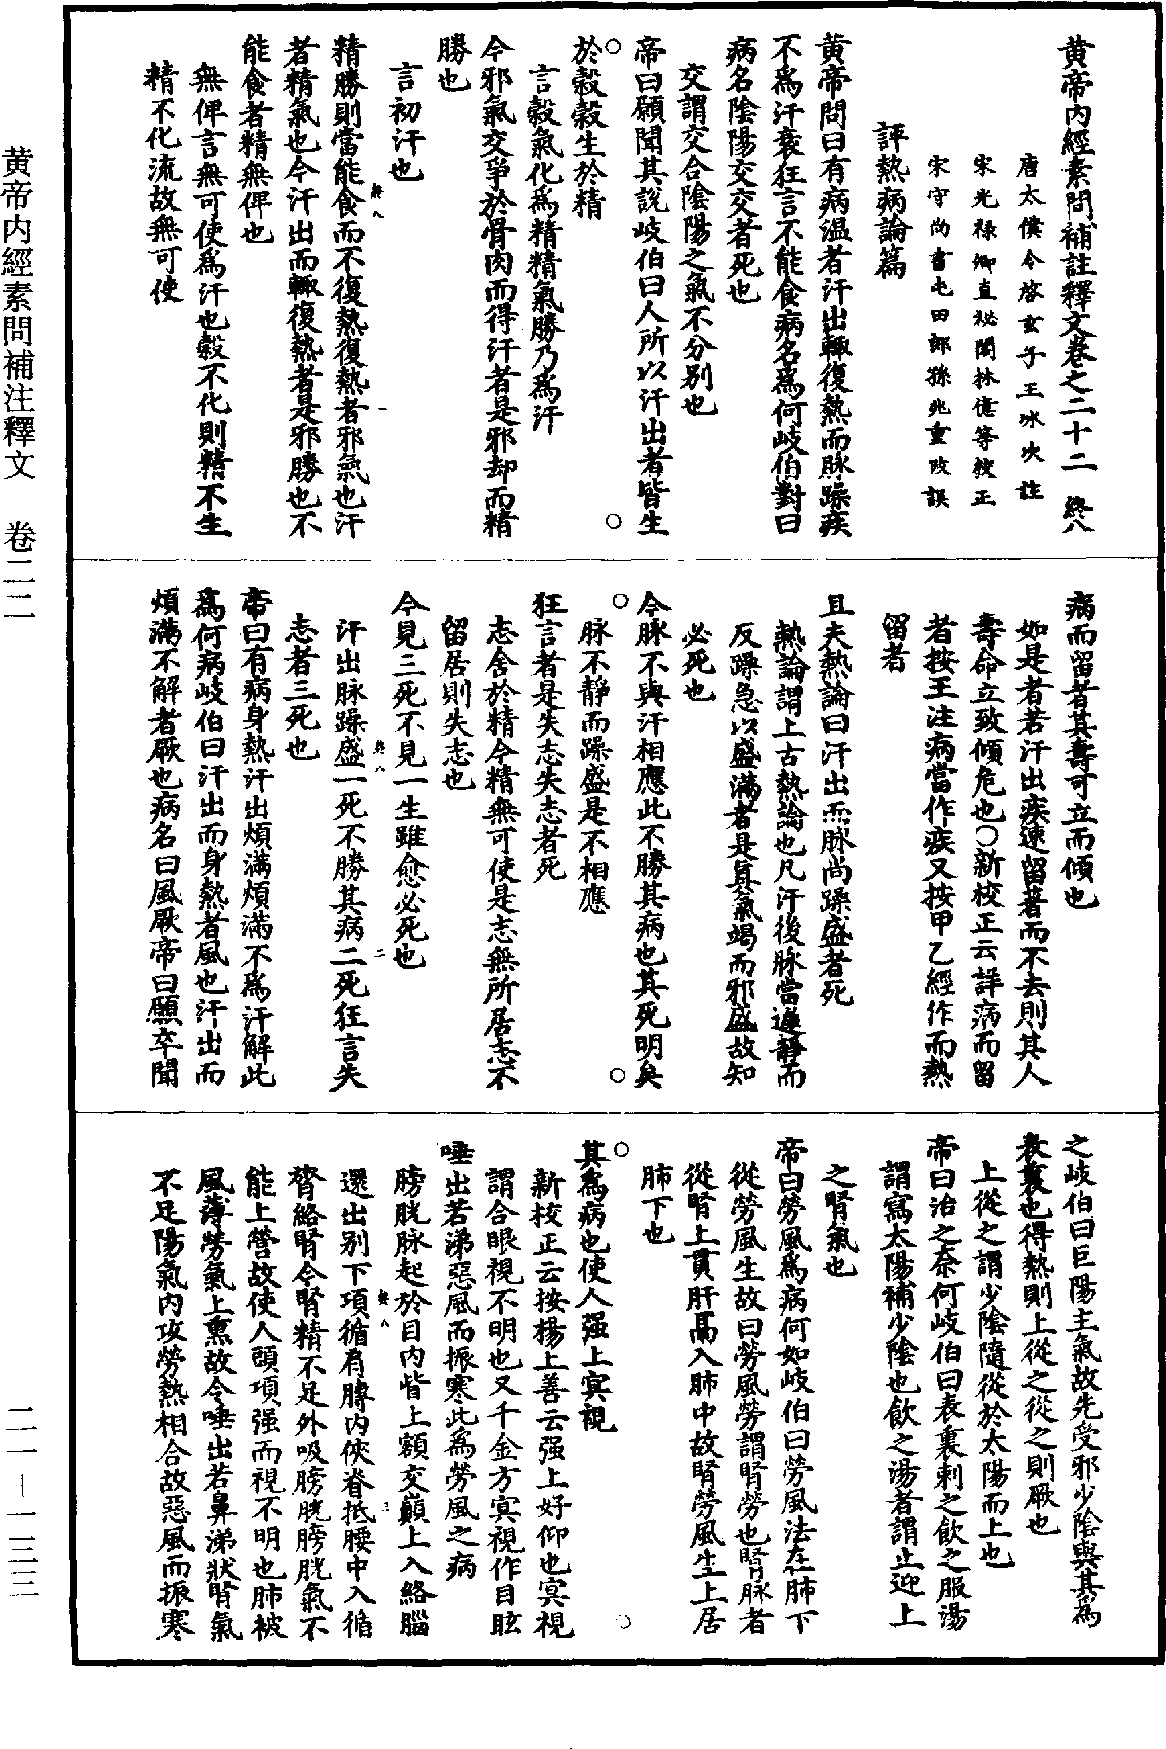 黄帝内經素問補註釋文卷之二十二　終八
唐太僕令啓玄子王冰次註
宋光祿卿直祕閣林億等校正
宋守尚書屯田郎孫兆重改誤
評熱病論篇
黄帝問曰有病温者汗出輒復熱而脉躁疾
不爲汗衰狂言不能食病名爲何岐伯對曰
病名陰陽交交者死也
交謂交合陰陽之氣不分别也
帝曰願聞其說岐伯曰人所以汗出者皆生
於穀穀生於精
言穀氣化爲精精氣勝乃爲汗
今邪氣交爭於骨肉而得汗者是邪却而精
勝也
言初汗也
精勝則當能食而不復熱復熱者邪氣也汗
者精氣也今汗出而輒復熱者是邪勝也不
能食者精無俾也
無俾言無可使爲汗也穀不化則精不生
精不化流故無可使
病而留者其壽可立而傾也
如是者若汗出疾速留著而不去則其人
壽命立致傾危也○新校正云詳病而留
者按王注病當作疾又按甲乙經作而熱
留者
且夫熱論曰汗出而脉尚躁盛者死
熱論謂上古熱論也凡汗後脉當遲靜而
反躁急以盛滿者是真氣竭而邪盛故知
必死也
今脉不與汗相應此不勝其病也其死明矣
脉不靜而躁盛是不相應
狂言者是失志失志者死
志舍於精今精無可使是志無所居志不
留居則失志也
今見三死不見一生雖愈必死也
汗出脉躁盛一死不勝其病二死狂言失
志者三死也
帝曰有病身熱汗出煩滿煩滿不爲汗解此
爲何病岐伯曰汗出而身熱者風也汗出而
煩滿不解者厥也病名曰風厥帝曰願卒聞
之岐伯曰巨陽主氣故先受邪少陰與其爲
表裏也得熱則上從之從之則厥也
上從之謂少陰隨從於太陽而上也
帝曰治之奈何岐伯曰表裏刺之飲之服湯
謂寫太陽補少陰也飲之湯者謂止逆上
之腎氣也
帝曰勞風爲病何如岐伯曰勞風法在肺下
從勞風生故曰勞風勞謂腎勞也腎脉者
從腎上貫肝鬲入肺中故腎勞風生上居
肺下也
其爲病也使人强上冥視
新校正云按楊上善云强上好仰也冥視
謂合眼視不明也又千金方冥視作目眩
唾出若涕惡風而振寒此爲勞風之病
膀胱脉起於目内眥上額交巔上入絡腦
還出别下項循肩髆内俠脊抵腰中入循
膂絡腎今腎精不足外吸膀胱膀胱氣不
能上營故使人頭項强而視不明也肺被
風薄勞氣上熏故令唾出若鼻涕狀腎氣
不足陽氣内攻勞熱相合故惡風而振寒
黄帝内經素問補注釋文　卷二二
二一—一三三